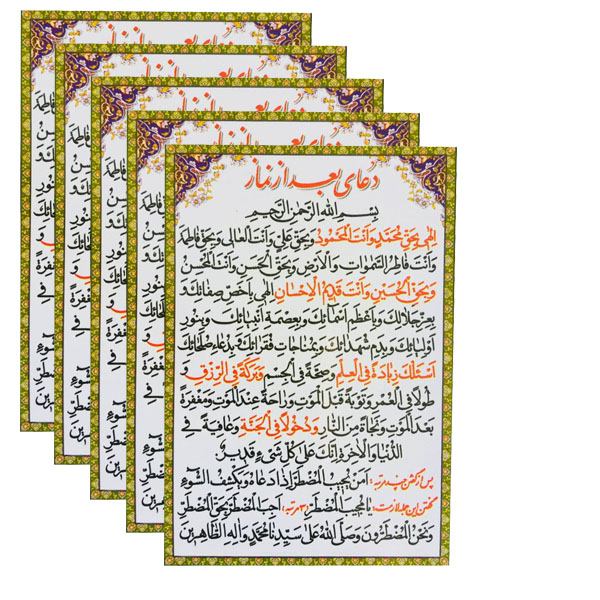 دعای بعد از نماز
بِسْمِ اللهِ الرَّحْمٰنِ الرَّحیمِ
اِلٰهی بِحَقِّ مُحَمَّدٍ وَاَنْتَ الْمَحْمُودُ وَبِحَقِّ عَلِیٍّ وَاَنْتَ الْعالی وَبِحَقِّ فاطِمَةَ
وَاَنْتَ فاطِرُ السَّمٰواتِ وَالْاَرْضِ وَبِحَقِّ الْحَسَنِ وَاَنْتَ الْمُحْسِنُ
وَبِحَقِّ الْحُسَیْنِ وَاَنْتَ قَدیمُ الْاِحْسانِ اِلٰهی بِاَخَصِّ صِفاتِكَ وَ
بِعِزِّ جَلالِكَ وَبِاَعْظَمِ اَسْمائِكَ وَبِعِصْمَةِ اَنْبِیائِكَ وَبِنُورِ
اَوْلِیائِكَ وَبِدَمِ شُهَدائِكَ وَبِمُناجاتِ فُقَرائِكَ وَبِدُعاءِ صُلَحائِكَ
اَسْئَلُكَ زِیادَةً فِی الْعِلْمِ وَصِحَّةً فِی الْجِسْمِ وَبَرَكَةً فِی الرِّزْقِ وَ
طُولاً فِی الْعُمْرِ وَتَوْبَةً قَبْلَ الْمَوْتِ وَراحَةً عِنْدَ الْمَوْتِ وَمَغْفِرَةً
بَعْدَ الْمَوْتِ وَنَجاةً مِنَ النّارِ وَدُخُولاً فِی الْجَنَّةِ وَعافِیَةً فِی
الدُّنْیا وَالْاٰخِرَةِ اِنَّكَ عَلیٰ كُلِّ شَیْءٍ قَدیرٌ
پس از گفتن چند مرتبه: اَمَّنْ یُجیبُ الْمُضْطَرَّ اِذا دَعاهُ وَیَكْشِفُ السُّوءَ
گفتن این جمله لازمست: یا مُجیبَ الْمُضْطَرِّ (۳ مرتبه) اَجِبِ الْمُضْطَرَّ بِحَقِّ الْمُضْطَرِّ
وَنَحْنُ الْمُضْطَرُّونَ وَصَلَّی اللهُ عَلیٰ سَیِّدِنا مُحَمَّدٍ وَاٰلِهِ الطّاهِرینَ